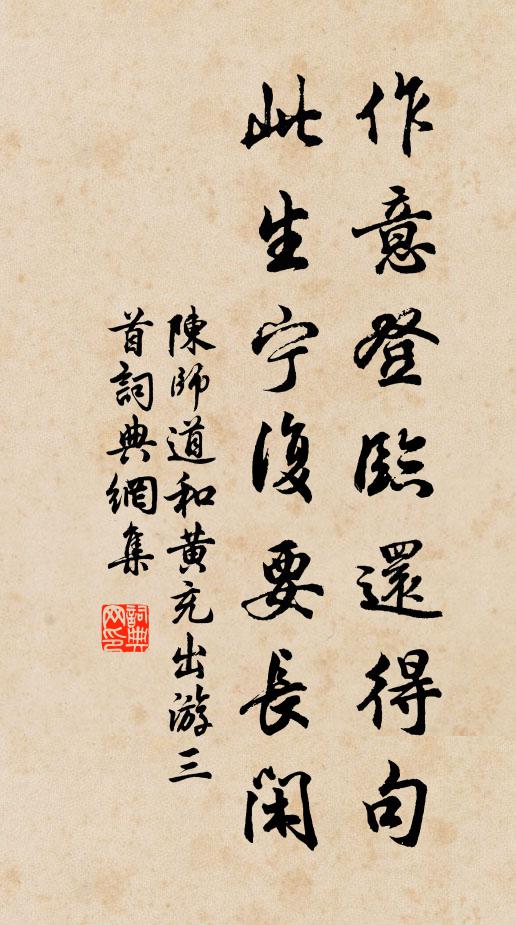 作意登臨還得句
此生宁復要長閑
陳師道和黄充出游三
首詞典網集
詞典
网印